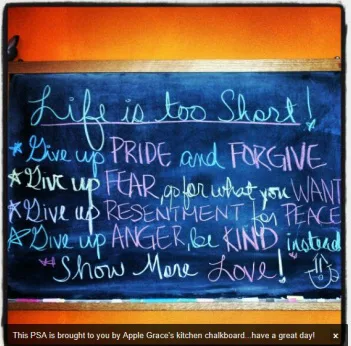 Life is too Short!
★Give up PRIDE and FORGIVE
★Give up FEAR, go for what you WANT
★Give up RESENTMENT for PEACE
★Give up ANGER, be KIND instead
★Show More Love!
This PSA is brought to you by Apple Grace's kitchen chalkboard...have a great day!
x